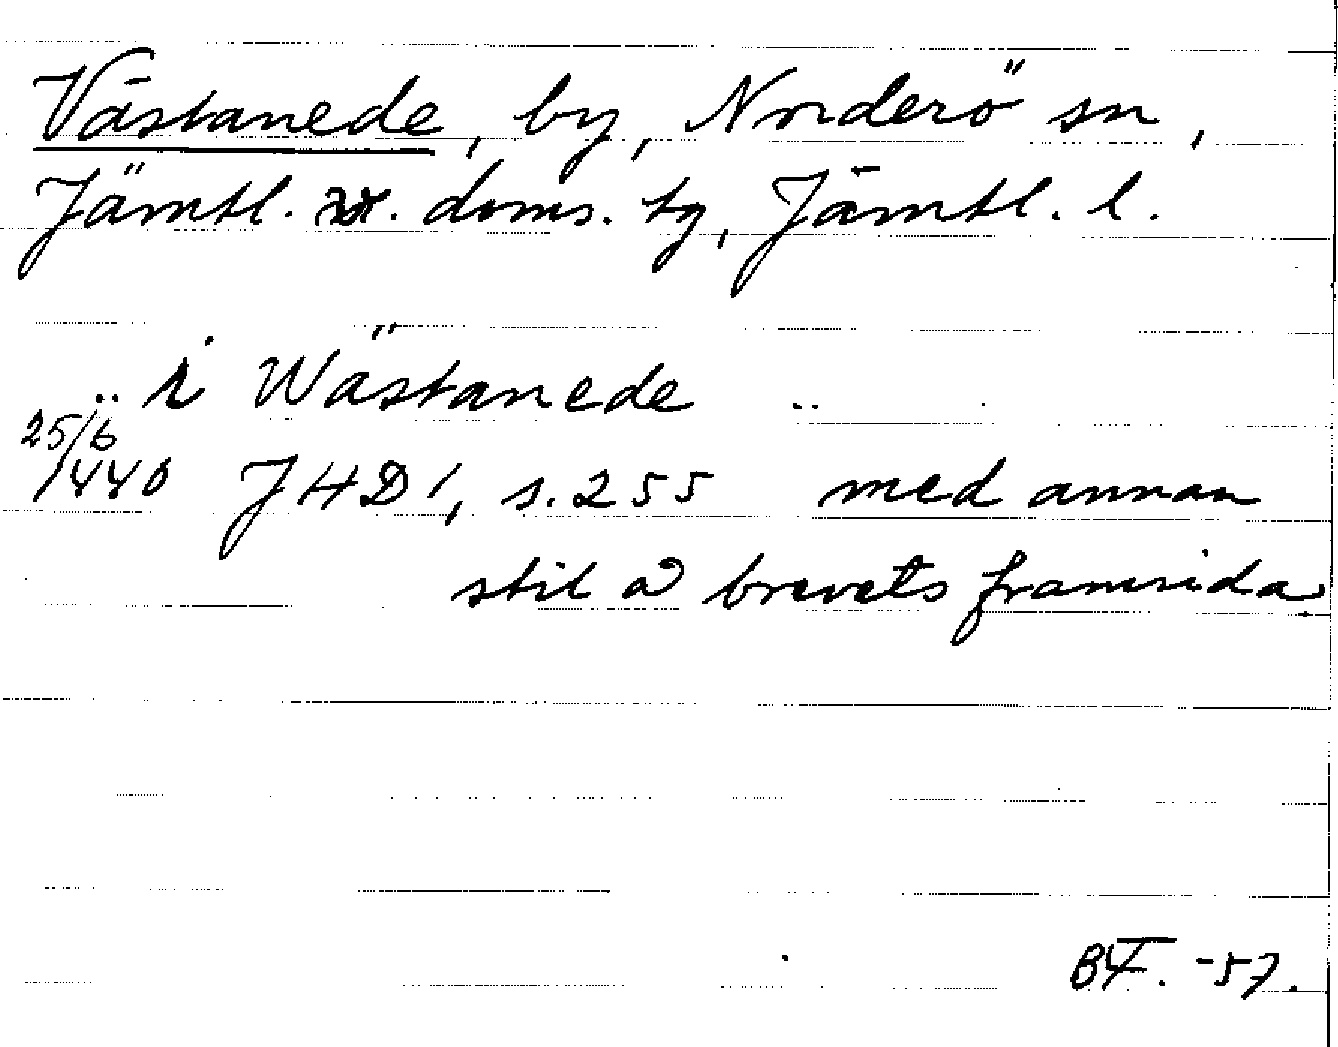 Västanede, by, Norderö sn,
Jämtl. v. doms. tg, Jämtl. l.
.. i Wästanede ..
25/6
1440 JHD 1, s. 255 med annan
stil å brevets framsida.
BF. -57.